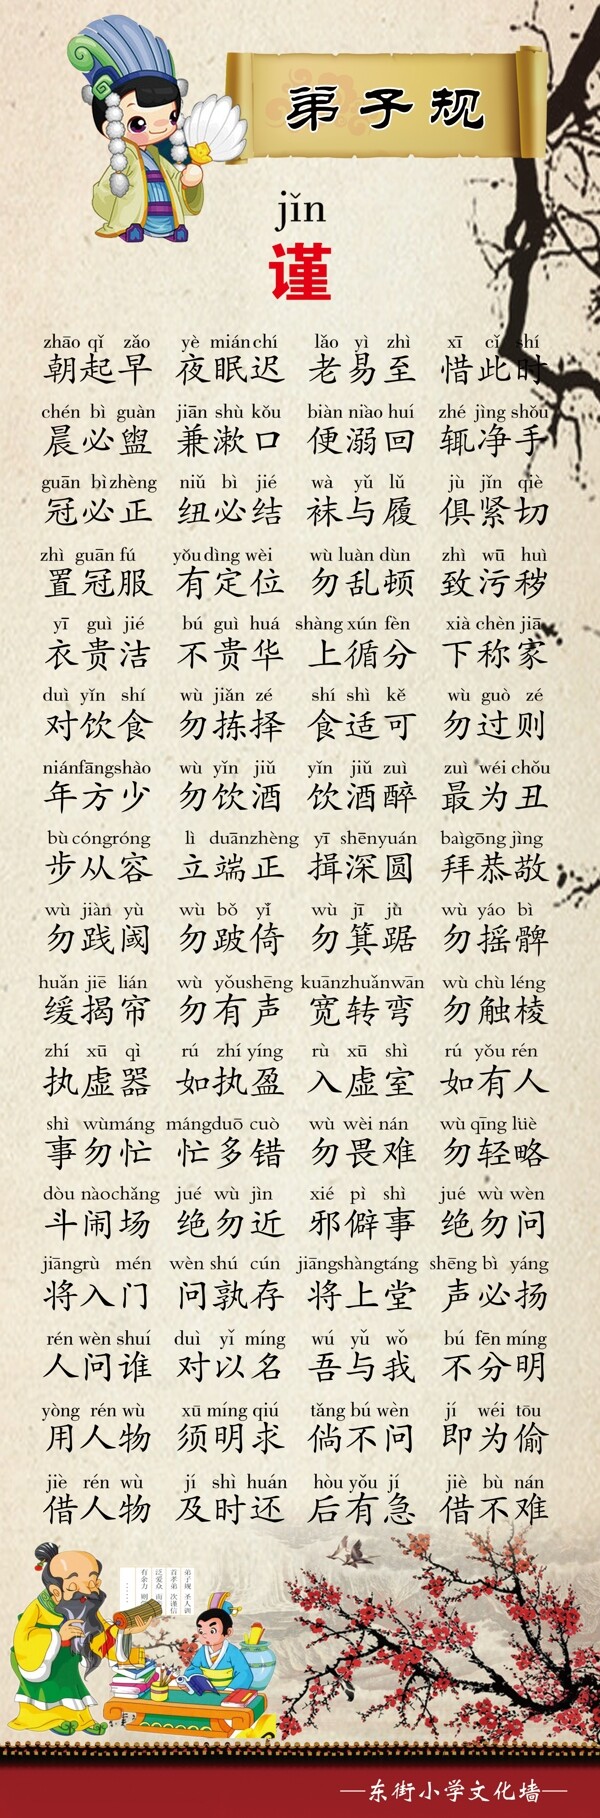 弟子规
jǐn
谨
zhāo qǐ zǎo yè mián chí lǎo yì zhì xī cǐ shí
朝起早 夜眠迟 老易至 惜此时
chén bì guàn jiān shù kǒu biàn niào huí zhé jìng shǒu
晨必盥 兼漱口 便溺回 辄净手
guān bì zhèng niǔ bì jié wà yǔ lǚ jù jǐn qiè
冠必正 纽必结 袜与履 俱紧切
zhì guān fú yǒu dìng wèi wù luàn dùn zhì wū huì
置冠服 有定位 勿乱顿 致污秽
yī guì jié bú guì huá shàng xún fèn xià chèn jiā
衣贵洁 不贵华 上循分 下称家
duì yǐn shí wù jiǎn zé shí shì kě wù guò zé
对饮食 勿拣择 食适可 勿过则
niánfāngshào wù yǐn jiǔ yǐn jiǔ zuì zuì wéi chǒu
年方少 勿饮酒 饮酒醉 最为丑
bù cóngróng lì duānzhèng yī shēnyuán baìgōng jìng
步从容 立端正 揖深圆 拜恭敬
wù jiàn yù wù bǒ yǐ wù jī jù wù yáo bì
勿践阈 勿跛倚 勿箕踞 勿摇髀
huǎn jiē lián wù yǒushēng kuānzhuǎnwān wù chù léng
缓揭帘 勿有声 宽转弯 勿触棱
zhí xū qì rú zhí yíng rù xū shì rú yǒu rén
执虚器 如执盈 入虚室 如有人
shì wùmáng mángduō cuò wù wèi nán wù qīng lüè
事勿忙 忙多错 勿畏难 勿轻略
dòu nàochǎng jué wù jìn xié pì shì jué wù wèn
斗闹场 绝勿近 邪僻事 绝勿问
jiāngrù mén wèn shú cún jiāngshàngtáng shēng bì yáng
将入门 问孰存 将上堂 声必扬
rén wèn shuí duì yǐ míng wú yǔ wǒ bú fēn míng
人问谁 对以名 吾与我 不分明
yòng rén wù xū míng qiú tǎng bú wèn jí wéi tōu
用人物 须明求 倘不问 即为偷
jiè rén wù jí shì huán hòu yǒu jí jiè bù nán
借人物 及时还 后有急 借不难
弟子规 圣人训
首孝弟 次谨信
泛爱众 而
有余力 则
—东街小学文化墙—